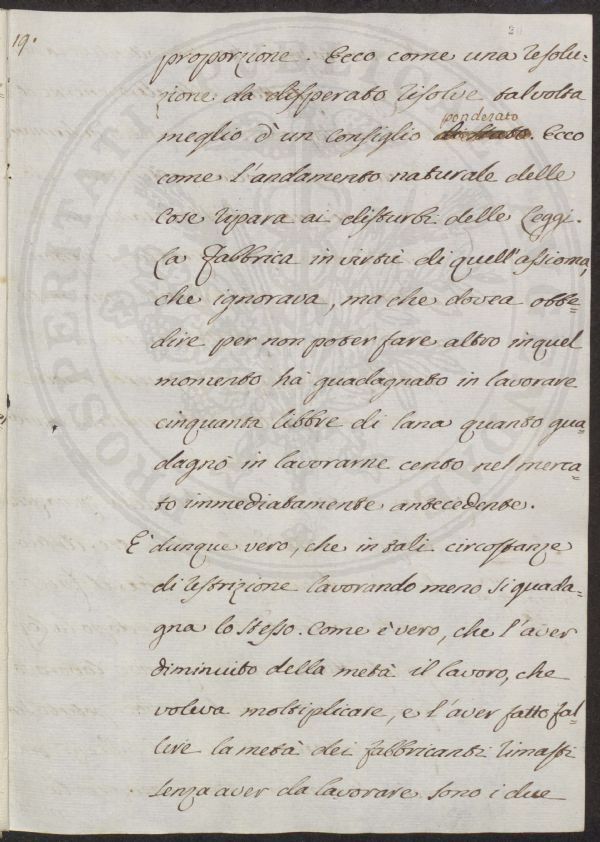 19.
20
proporzione. Ecco come una resolu=
zione da disperato risolve talvolta
meglio d'un consiglio ponderato. Ecco
come l'andamento naturale delle
cose ripara ai disturbi delle Leggi.
La fabbrica in virtù di quell'assioma,
che ignorava, ma che dovea obbe=
dire per non poter fare altro in quel
momento hà guadagnato in lavorare
cinquanta libbre di lana quanto gua=
dagnò in lavorarne cento nel merca=
to immediatamente antecedente.
E' dunque vero, che in tali circostanze
di restrizione lavorando meno si guada=
gna lo stesso. Come è vero, che l'aver
diminuito della metà il lavoro, che
voleva moltiplicare, e l'aver fatto fal=
lire la metà dei fabbricanti rimasti
senza aver da lavorare sono i due
PROSPERITATI PUBLICAE